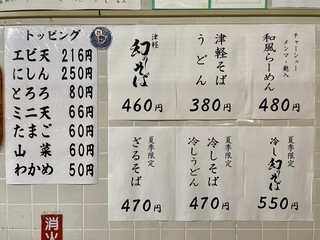 トッピング
エビ天 216円
にしん 250円
とろろ 80円
ミニ天 66円
たまご 60円
山菜 60円
わかめ 50円
津軽
幻のそば
460円
津軽そば
うどん
380円
チャーシュー
メンマ・麩入
和風らーめん
480円
夏季限定
ざるそば
470円
夏季限定
冷しそば
冷しうどん
470円
夏季限定
冷し幻のそば
550円
消火